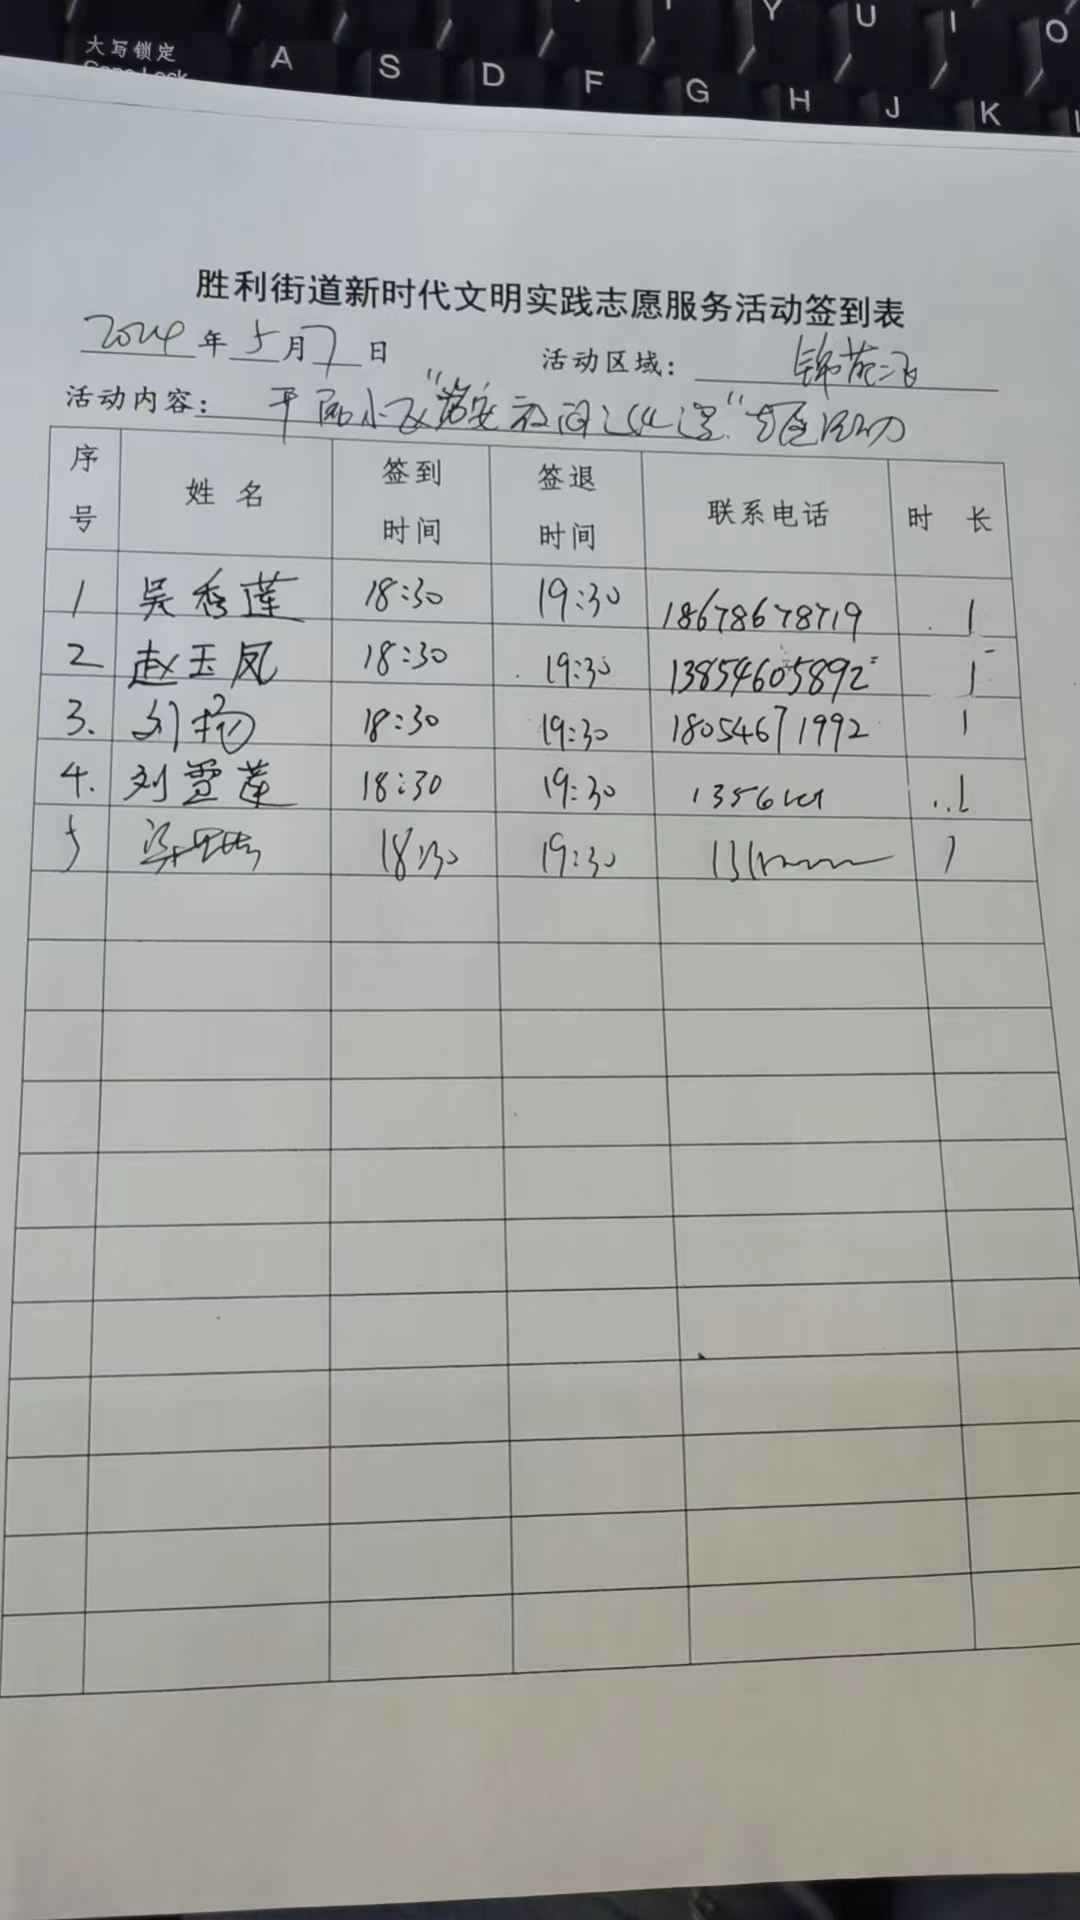 大写锁定
Caps Lock
Y U I O
A S D F G H J K
胜利街道新时代文明实践志愿服务活动签到表
2024年5月7日 活动区域：锦苑二
活动内容：平 小区
序号 姓名 签到时间 签退时间 联系电话 时长
1 吴秀莲 18:30 19:30 18678678719 1
2 赵玉凤 18:30 19:30 13854605892 1
3. 刘扬 18:30 19:30 18054671992 1
4. 刘雪莲 18:30 19:30 1356 1
5 18:30 19:30 131 1